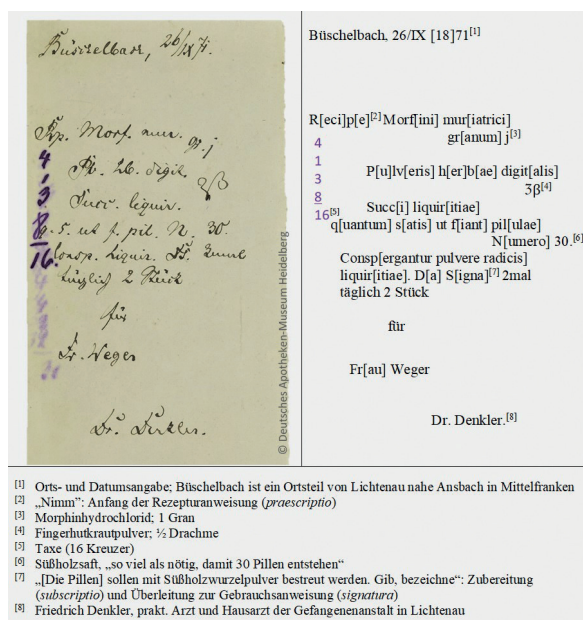 Büschelbach, 26/IX 71.
Rp. Morf. mur. gr. j
4
Pl. hb. digit. ʒβ
1
3
Succ. liquir.
8
q. s. ut f. pil. N. 30.
16
Consp. liquir. DS. 2mal
täglich 2 Stück
für
Fr. Weger
Dr. Denkler.
© Deutsches Apotheken-Museum Heidelberg
Büschelbach, 26/IX [18]71[1]
R[eci]p[e][2] Morf[ini] mur[iatrici]
gr[anum] j[3]
4
1
3
8
16[5]
P[u]lv[eris] h[er]b[ae] digit[alis]
ʒβ[4]
Succ[i] liquir[itiae]
q[uantum] s[atis] ut f[iant] pil[ulae]
N[umero] 30.[6]
Consp[ergantur pulvere radicis]
liquir[itiae]. D[a] S[igna][7] 2mal
täglich 2 Stück
für
Fr[au] Weger
Dr. Denkler.[8]
[1] Orts- und Datumsangabe; Büschelbach ist ein Ortsteil von Lichtenau nahe Ansbach in Mittelfranken
[2] „Nimm”: Anfang der Rezepturanweisung (praescriptio)
[3] Morphinhydrochlorid; 1 Gran
[4] Fingerhutkrautpulver; ½ Drachme
[5] Taxe (16 Kreuzer)
[6] Süßholzsaft, „so viel als nötig, damit 30 Pillen entstehen“
[7] „[Die Pillen] sollen mit Süßholzwurzelpulver bestreut werden. Gib, bezeichne“: Zubereitung
(subscriptio) und Überleitung zur Gebrauchsanweisung (signatura)
[8] Friedrich Denkler, prakt. Arzt und Hausarzt der Gefangenenanstalt in Lichtenau